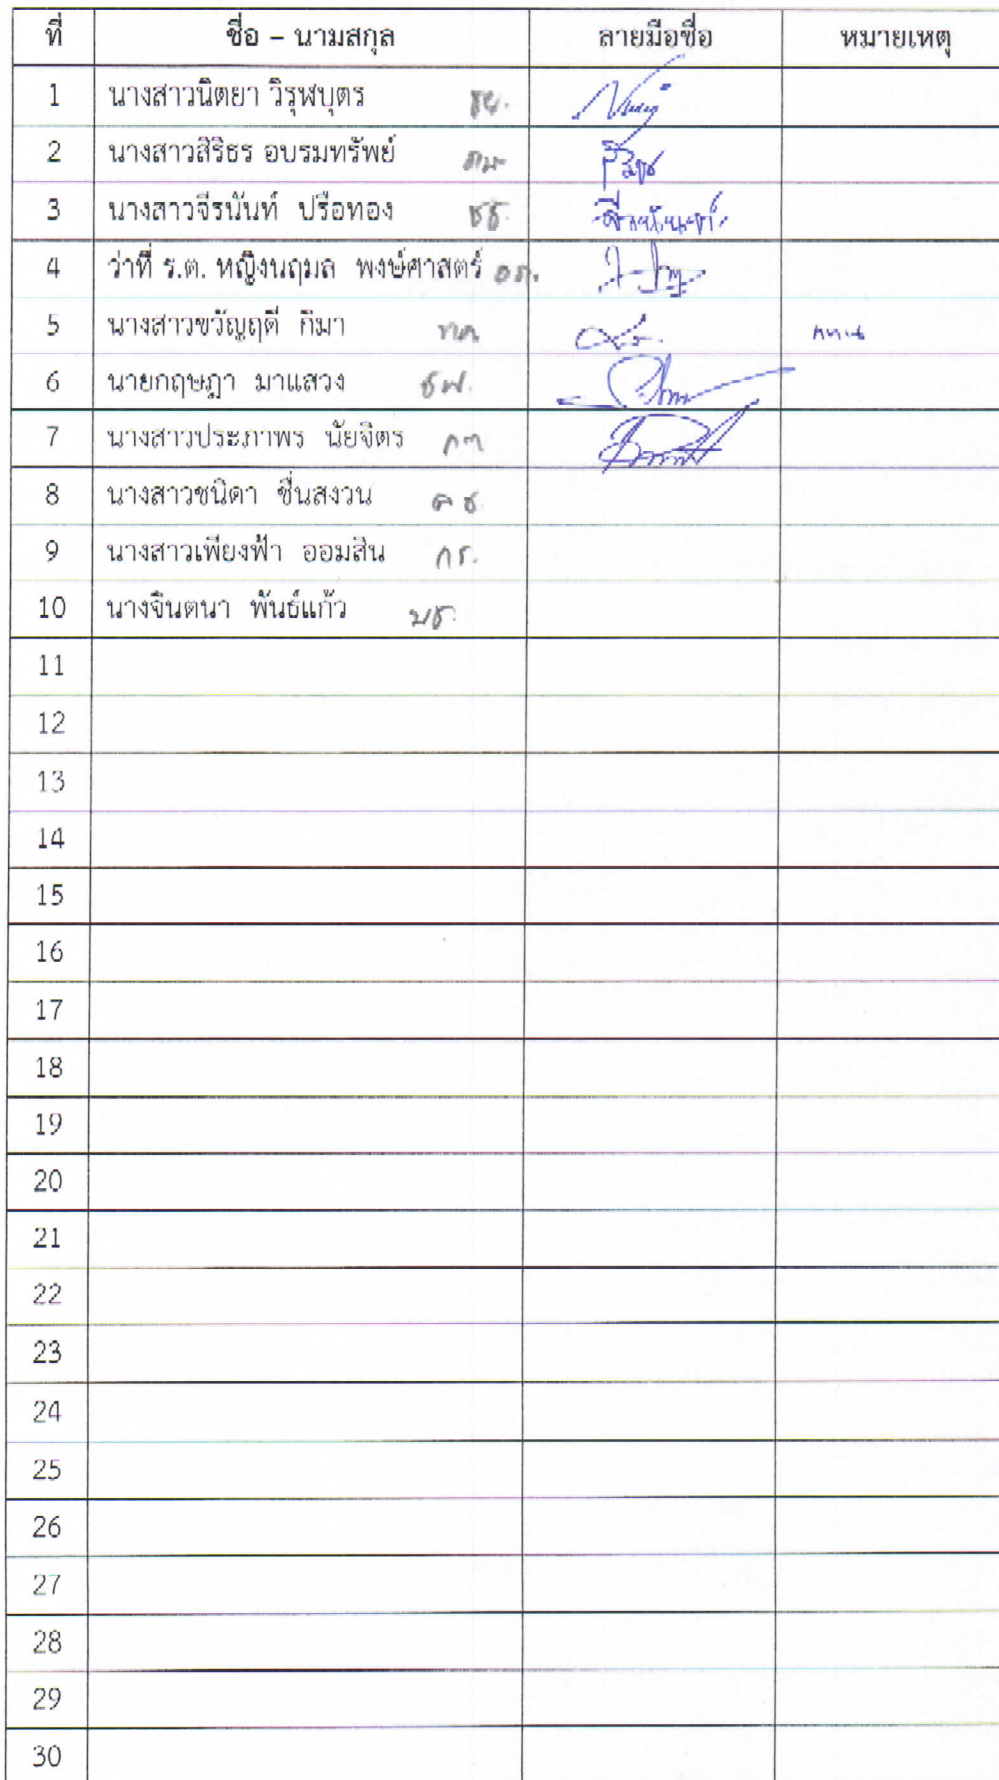 ที่ ชื่อ – นามสกุล ลายมือชื่อ หมายเหตุ
1 นางสาวนิตยา วิรุฬบุตร ชย.
2 นางสาวสิริธร อบรมทรัพย์
3 นางสาวจีรนันท์ ปรือทอง ชธ. จีรนันท์
4 ว่าที่ ร.ต. หญิงนฤมล พงษ์ศาสตร์ อภ.
5 นางสาวขวัญฤดี กิมา ทด แทน
6 นายกฤษฎา มาแสวง ธพ.
7 นางสาวประภาพร นัยจิตร กต
8 นางสาวชนิดา ชื่นสงวน คช.
9 นางสาวเพียงฟ้า ออมสิน กร.
10 นางจินตนา พันธ์แก้ว บธ.
11
12
13
14
15
16
17
18
19
20
21
22
23
24
25
26
27
28
29
30